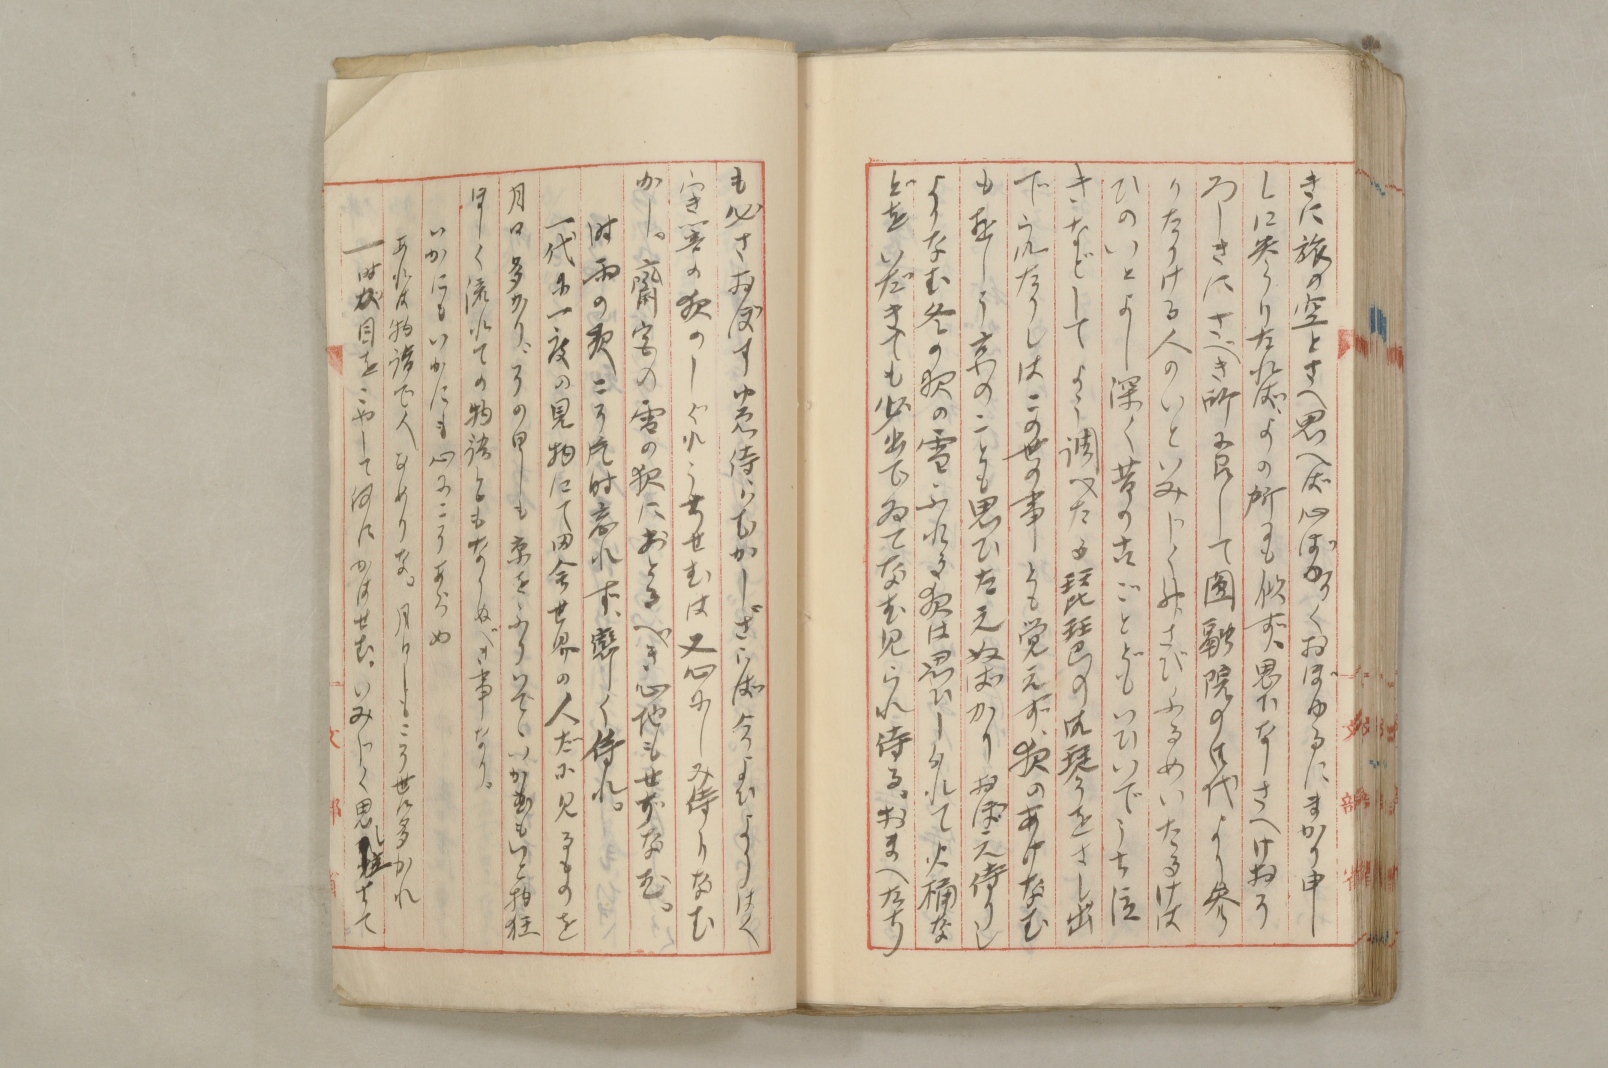 きに旅の空とさへ思へば心ぼそくおぼゆるにまかり申
しに参うりたれば、よの所にも似ず、思ひなしさへけおそ
ろしきにさべき所に召して円融院の御代より参
りたりける人のいといみじく神さびふるめいたるけは
ひのいとよし深く昔の古ごとどもいひいでうち泣
きなどしてよう調べたる琵琶の御琴をさし出
でられたりしはこの世の事とも覚えず、夜のあけなむ
も惜しう京のことも思ひたえぬばかりおぼえ侍りし
よりなむ冬の夜の雪ふれる夜は思ひしられて火桶な
どをいだきても必出でゐてなむ見られ侍る。おまへたち
も必さおぼすゆゑ侍らむかし。さらば今よひよりは
き暗の夜のしぐれうちせむは又心にしみ侍りなむ
かし。斎宮の雪の夜におとるべき心地もせずなむ。
時雨の夜こそ片時忘れず、恋しく侍れ。
一代に一度の見物にて田舎世界の人だに見るものを
月日多かり、その日しも京をふりいでていかむもいと物狂
ほしく流れての物語ともなりぬべき事なり。
いかにもいかにも心にこそあらめ
あれは物詣で人なめりな。月日しもこそ世に多かれ
一時が目をこやして何にかはせむ、いみじく思し立ちて
文部省